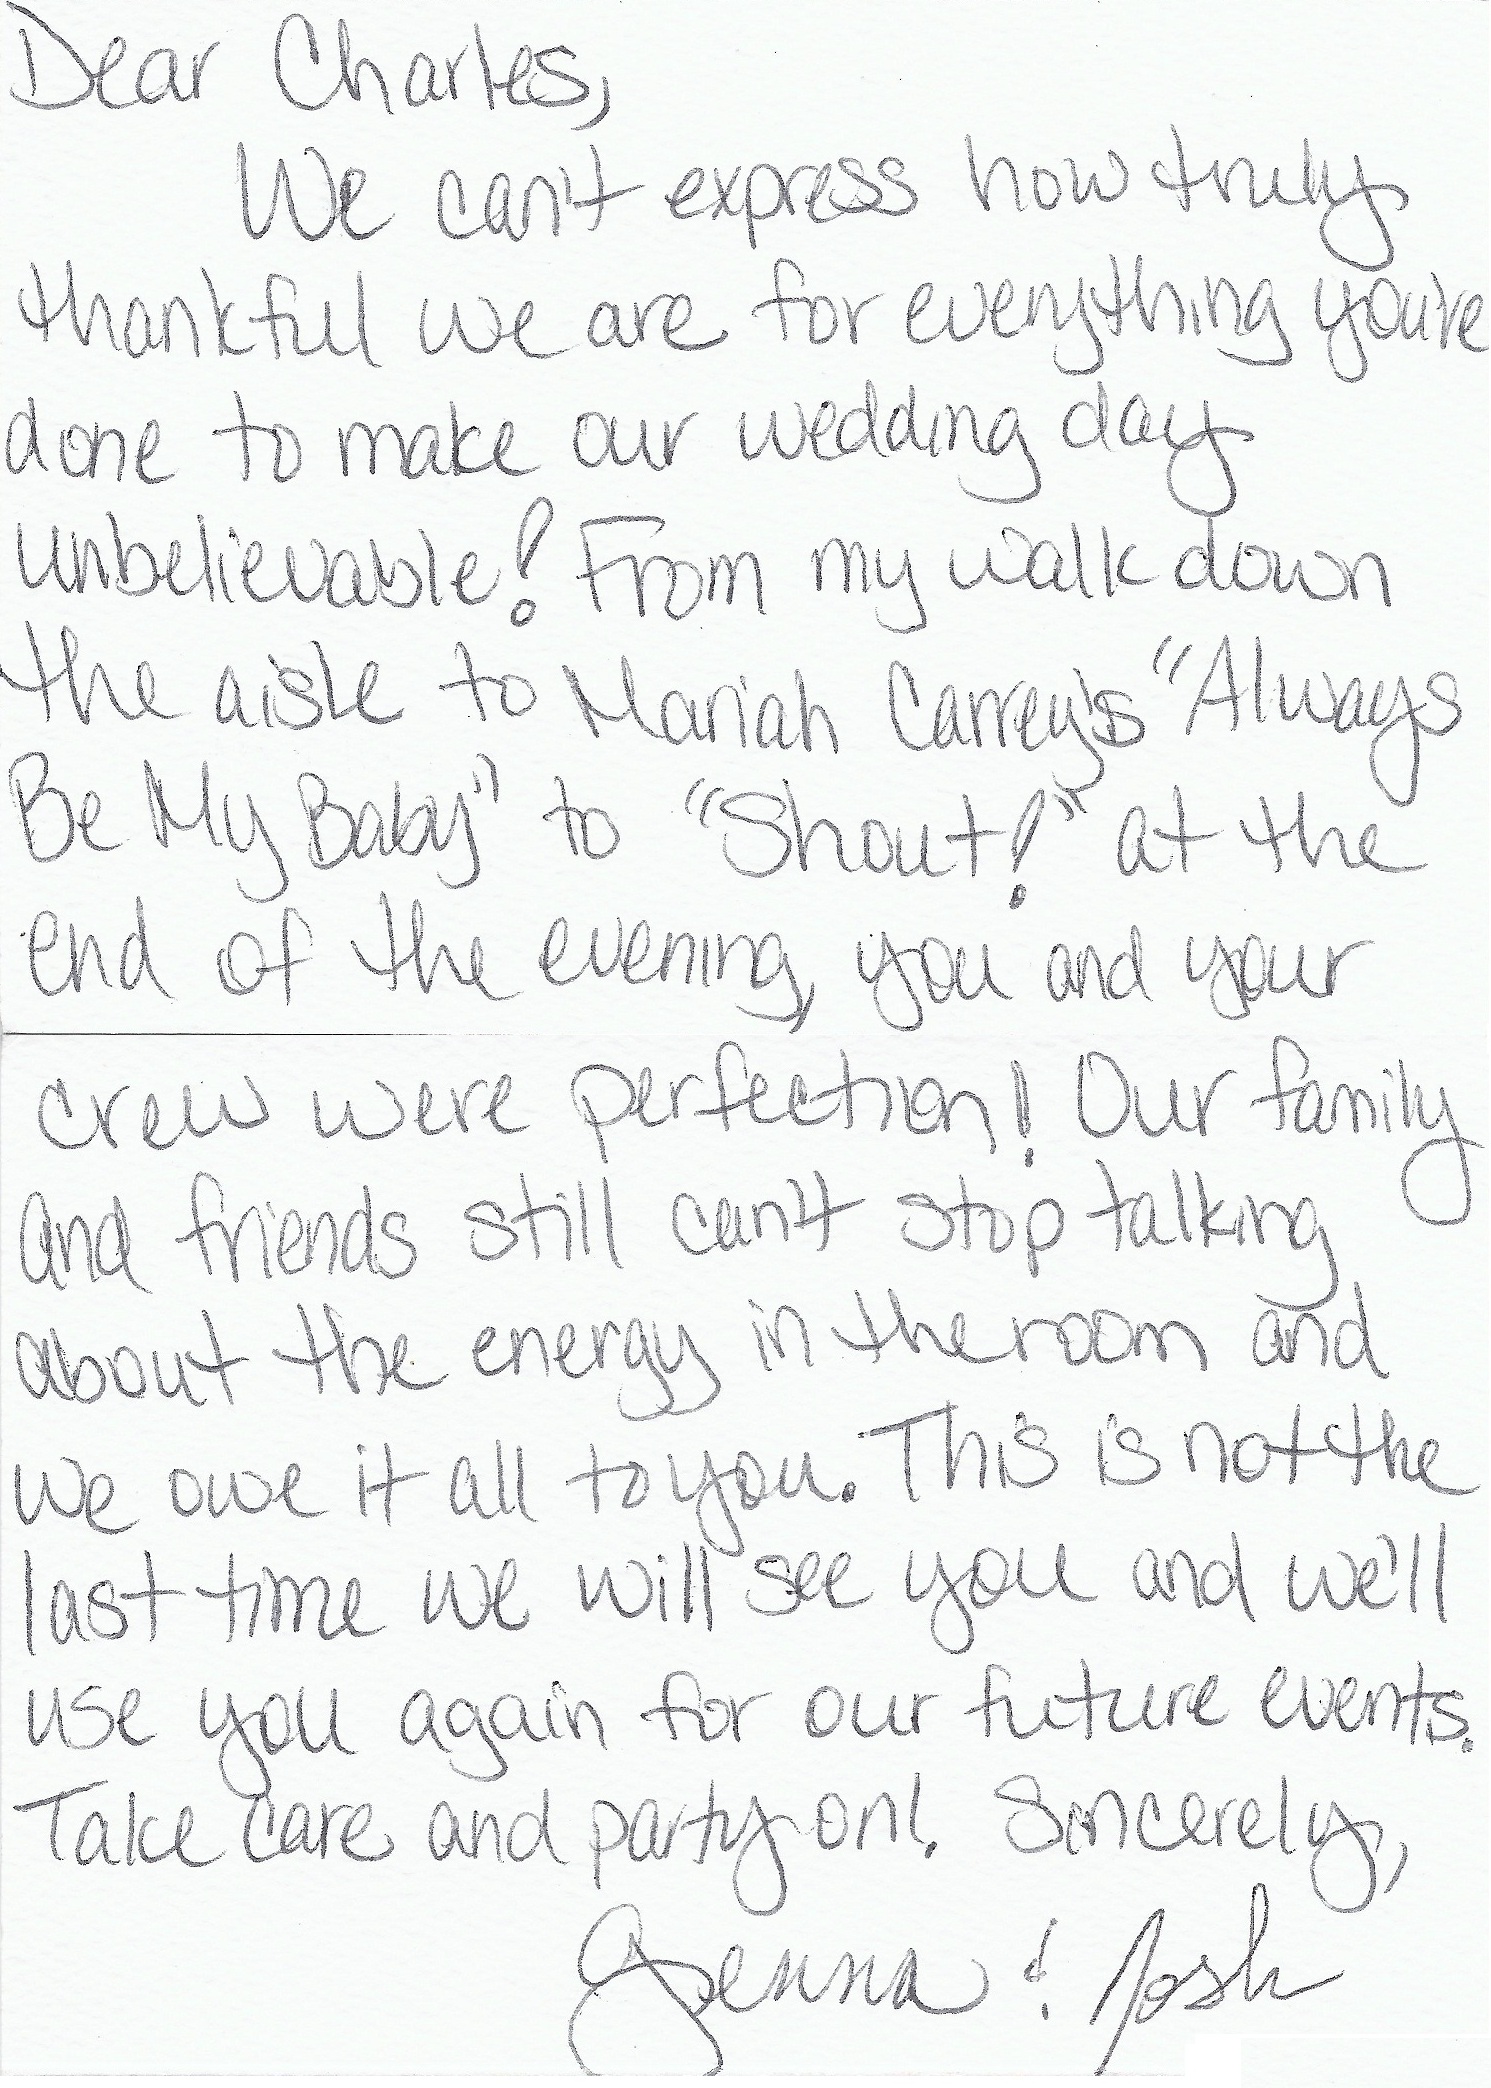 Dear Charles,
We can't express how truly
thankful we are for everything you've
done to make our wedding day
unbelievable! From my walk down
the aisle to Mariah Carrey's "Always
Be My Baby" to "Shout!" at the
end of the evening, you and your
crew were perfection! Our family
and friends still can't stop talking
about the energy in the room and
we owe it all to you. This is not the
last time we will see you and we'll
use you again for our future events.
Take care and party on! Sincerely,
Jenna & Josh